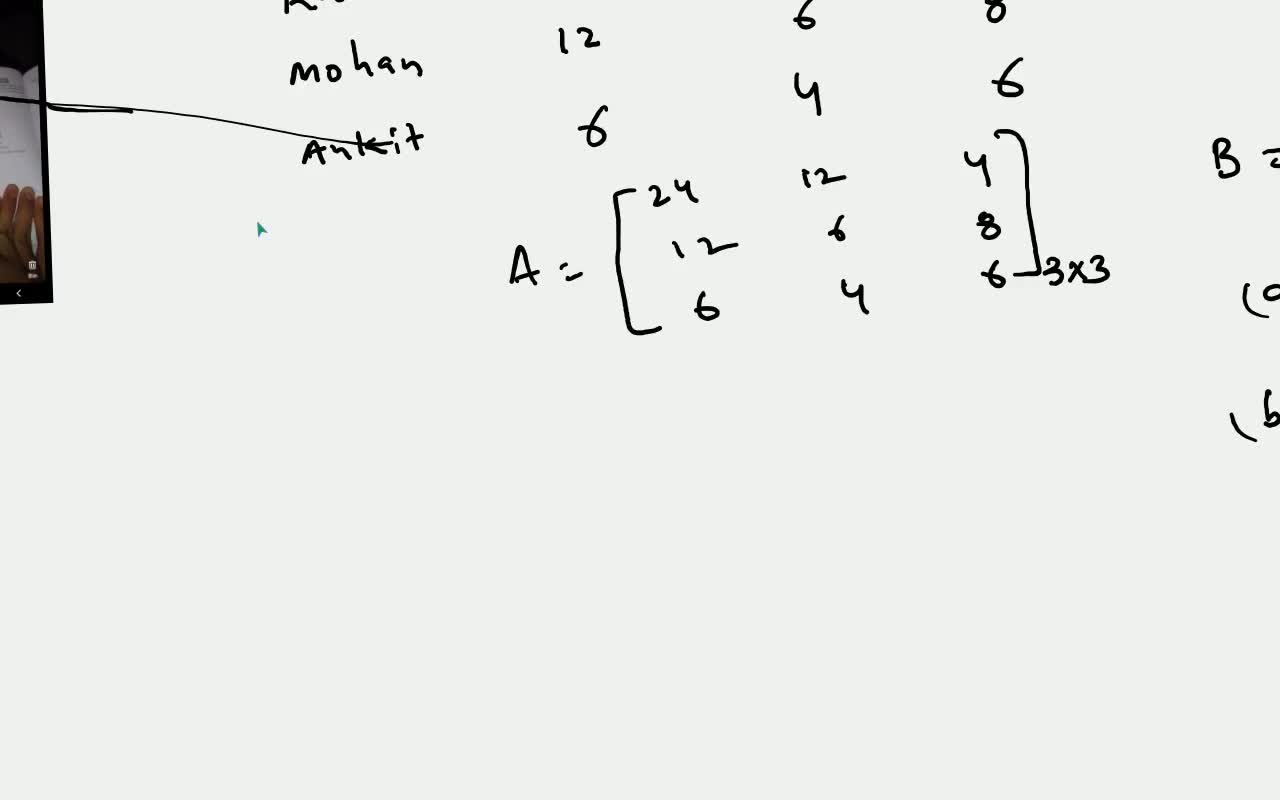 12 6 8
Mohan 4 6
Ankit 6
A = [ 24 12 4
12 6 8
6 4 6 ] 3×3
B =
(
(b